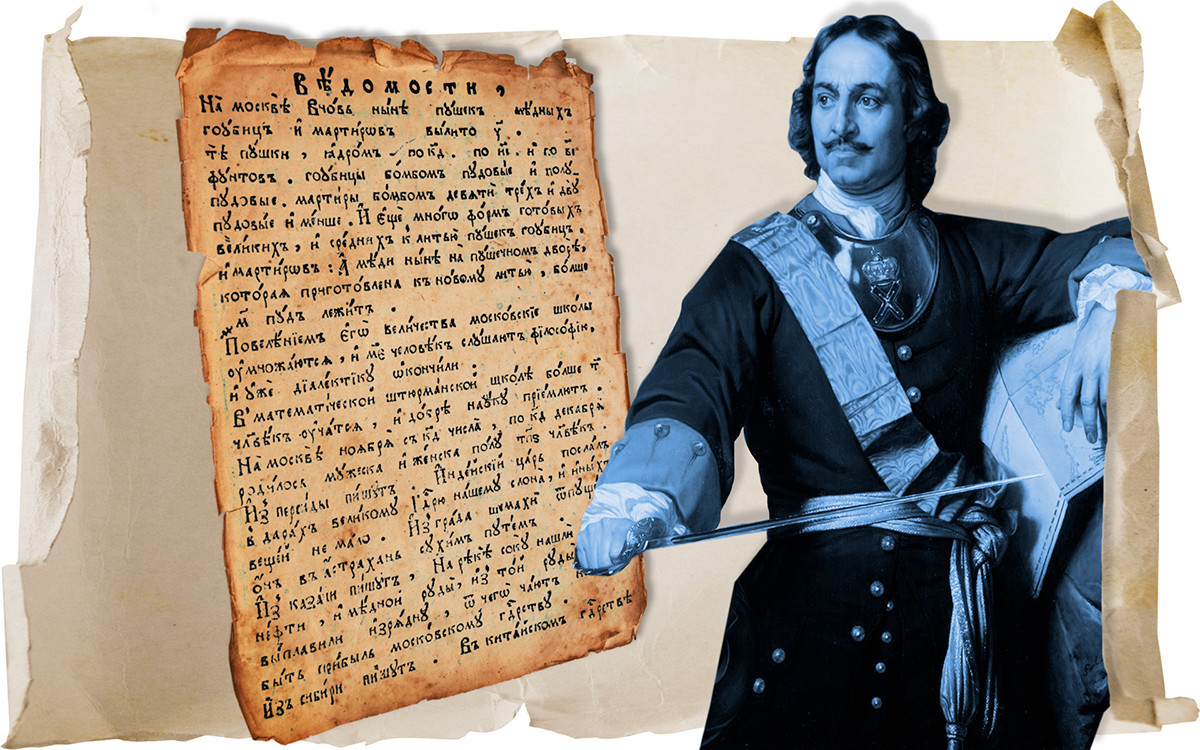 Вѣ́домости ,
На москвѣ̀ вновь ны́нѣ пу́шекъ мѣ́дныхъ
гоу́бицъ и҆ мартировъ вы́лито у҃ .
тѣ̀ пу́шки , ꙗ҆дро́мъ по к҃д . по и҃і . и҆ по в҃і
фу́нтовъ . гоу́бицы бо́мбомъ пудо́вые и҆ полу
пудо́вые . марти́ры , бо́мбомъ девятѝ тре́хъ и҆ двꙋ
пудо́вые и҆ ме́нше . И҆ є҆щѐ мно́гѡ фо́рмъ гото́выхъ
вели́кихъ , и҆ сре́днихъ к литью̀ пу́шекъ гоу́бицъ .
и҆ марти́ровъ : А҆ мѣ́ди ны́нѣ на пу́шечномъ дворѣ̀ ,
кото́рая приготовлена къ но́вому литью̀ , бо́лше
҂м҃ пудъ лежи́тъ .
Повелѣ́нїемъ є҆гѡ̀ вели́чества моско́вскїе шко́лы
оу҆множа́ются , и҆ м҃е человѣ́къ слу́шаютъ фїлосо́фїю ,
и҆ ужѐ дїале́ктїку ѡ҆ко́нчили :
В математи́ческой штюрма́нской шко́лѣ бо́лше т҃
чл҃вѣ́къ оу҆́чатся , и҆ до́брѣ нау́ку прїе́млютъ .
На москвѣ̀ ноября̀ съ к҃д числа̀ , по к҃д декабря̀
роди́лося му́жеска и҆ же́нска по́лу т҃пѕ чл҃вѣ́къ .
И҆з перси́ды пи́шутъ . И҆нде́йскїй ца́рь посла́лъ
в дара́хъ вели́кому гд҃рю на́шему слона̀ , и҆ и҆ны́хъ
веще́й не ма́ло . И҆з гра́да шемахѝ ѿпу́ще
о҆́нъ въ а҆́страхань сухи́мъ путе́мъ
И҆з каза́ни пи́шутъ , На рѣкѣ̀ соку̀ нашлѝ
не́фти , и҆ мѣ́дной руды̀ , и҆з то́й руды̀
вы́плавили и҆зря́дну , ѿ чегѡ̀ ча́ютъ
бы́ть при́быль моско́вскому гд҃рству .
И҆зъ сиби́ри пи́шутъ . Въ кита́йскомъ гд҃рствѣ